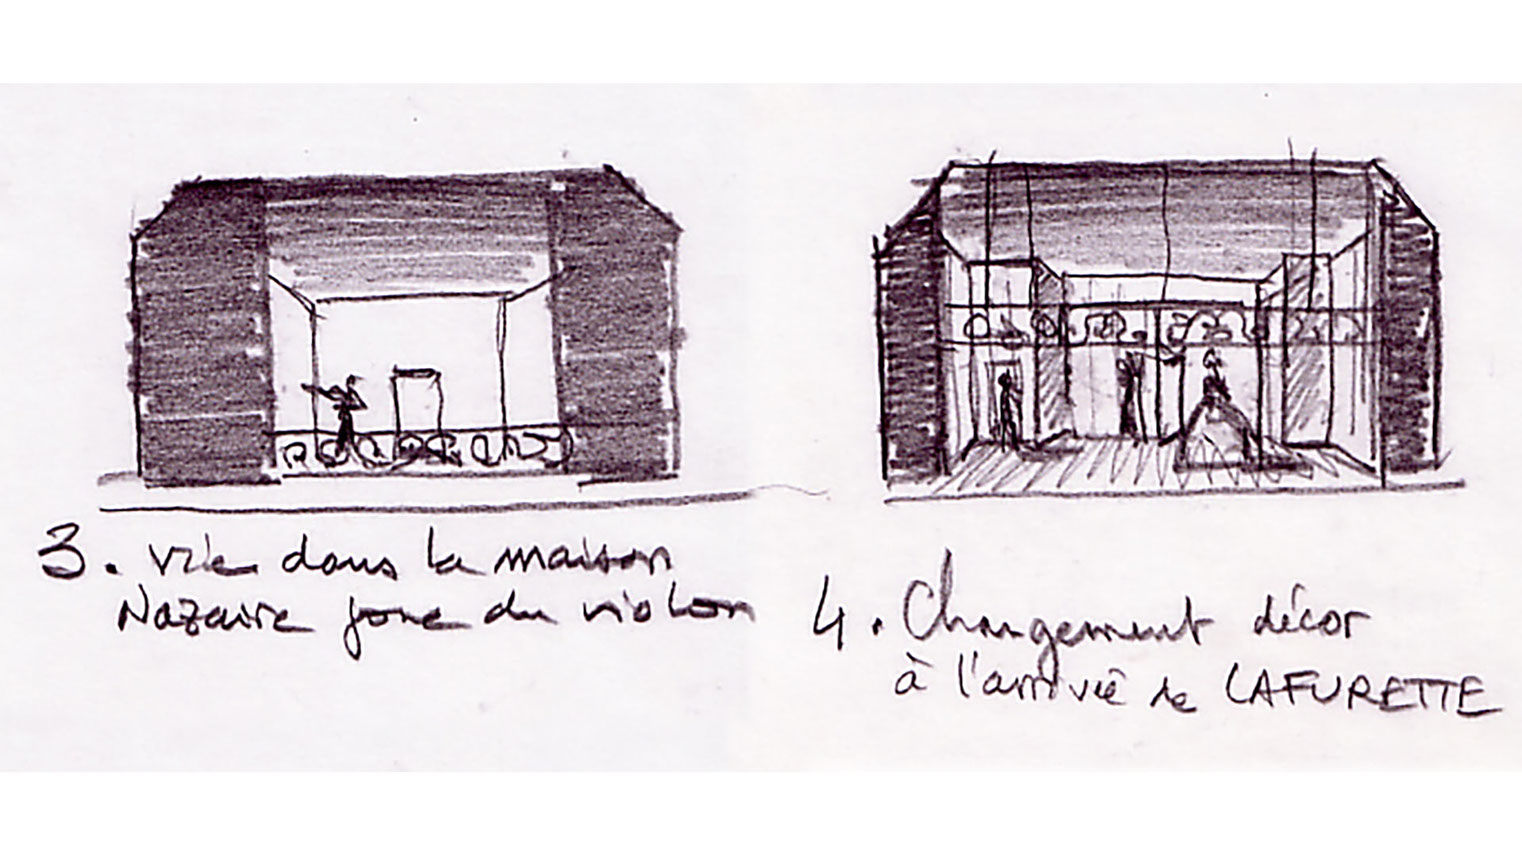 3. vie dans la maison
Nazaire joue du violon
4. Changement décor
à l'arrivée de LAFURETTE